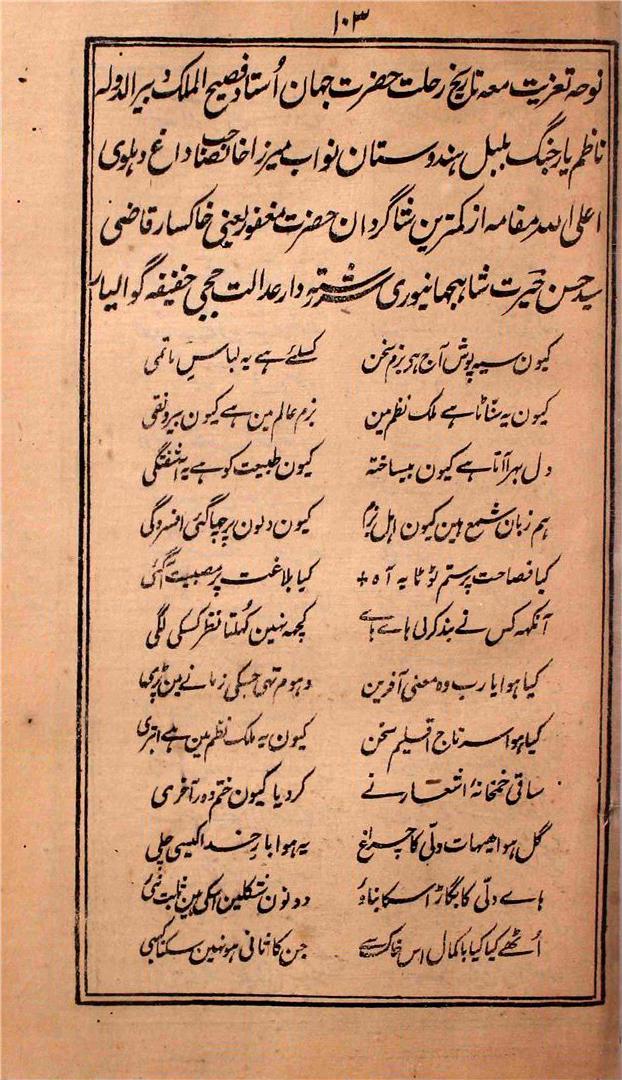 ۱۰۳
نوحہ تعزیت معہ تاریخ رحلت حضرت جہان اُستاد فصیح الملک دبیر الدولہ
ناظم یار جنگ بلبل ہندوستان نواب میرزا خانصاحب داغ دہلوی
اعلی اللہ مقامہ از کمترین شاگردان حضرت مغفور یعنی خاکسار قاضی
سید حسن حیرت شاہجہانپوری سررشتہ دار عدالت ججی خفیفہ گوالیار
کیون سیہ پوش آج ہی بزم سخن کسلئے ہے یہ لباسِ ماتمی
کیون یہ سنّاٹا ہے ملک نظم مین بزم عالم مین ہے کیون بیرونقی
دل بہرا آتا ہے کیون بیساختہ کیون طبیعت کو ہے یہ آشفتگی
ہم زبان شمع ہین کیون اہل بزم کیون دلون پر چہا گئی افسردگی
کیا فصاحت پر ستم ٹوٹا یہ آہ + کیا بلاغت پر مصیبت آگئی
آنکہہ کس نے بند کرلی ہاے ہاے کچہہ نہین کُہلتا نظر کسکی لگی
کیا ہوا یارب وہ معنی آفرین دہوم تہی جسکی زمانے مین پڑی
کیا ہوا سرتاج اقلیم سخن کیون یہ ملک نظم مین ہے ابتری
ساقی خمخانۂ اشعار نے کردیا کیون ختم دور آخری
گل ہوا ہیہات دلّی کا چراغ یہ ہوا بار خدا کیسی چلی
ہاے دلّی کا بگاڑ اسکا بناؤ دونون شکلین اسکی ہین
اُٹھے کیا کیا باکمال اس خاک سے جن کا ثانی ہو نہین سکتا کبہی